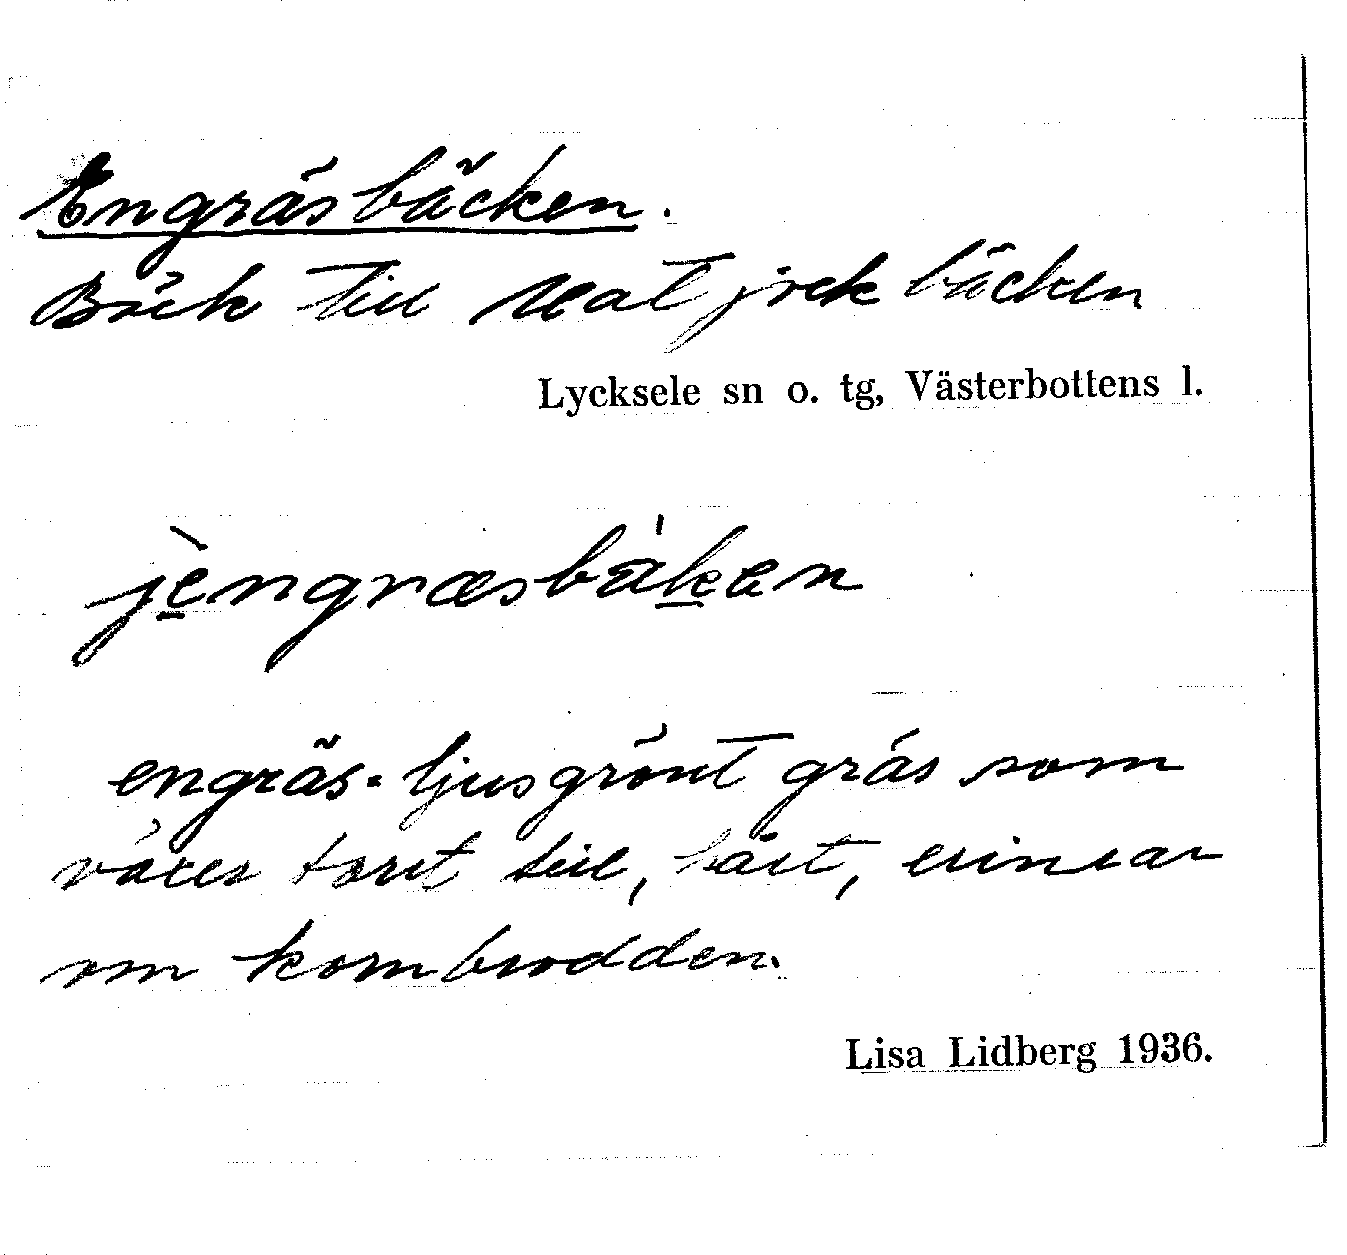 Engräsbäcken.
Bäck till Natjrekbäcken
Lycksele sn o. tg, Västerbottens l.
jèngræsbákan
engräs. ljusgrönt gräs som
växer tort till, bäst, erinrar
om kornbrodden.
Lisa Lidberg 1936.